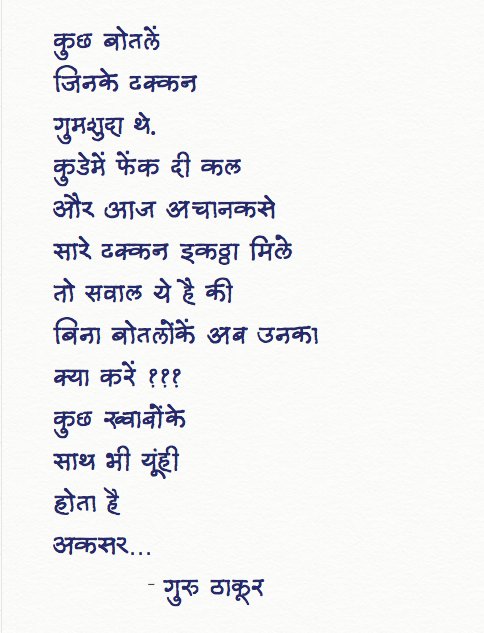 कुछ बोतलें
जिनके ढक्कन
गुमशुदा थे.
कुडेमें फेंक दी कल
और आज अचानकसे
सारे ढक्कन इकठ्ठा मिले
तो सवाल ये है की
बिना बोतलोंकें अब उनका
क्या करें ???
कुछ ख्वाबोंके
साथ भी यूंही
होता है
अकसर...
- गुरु ठाकूर